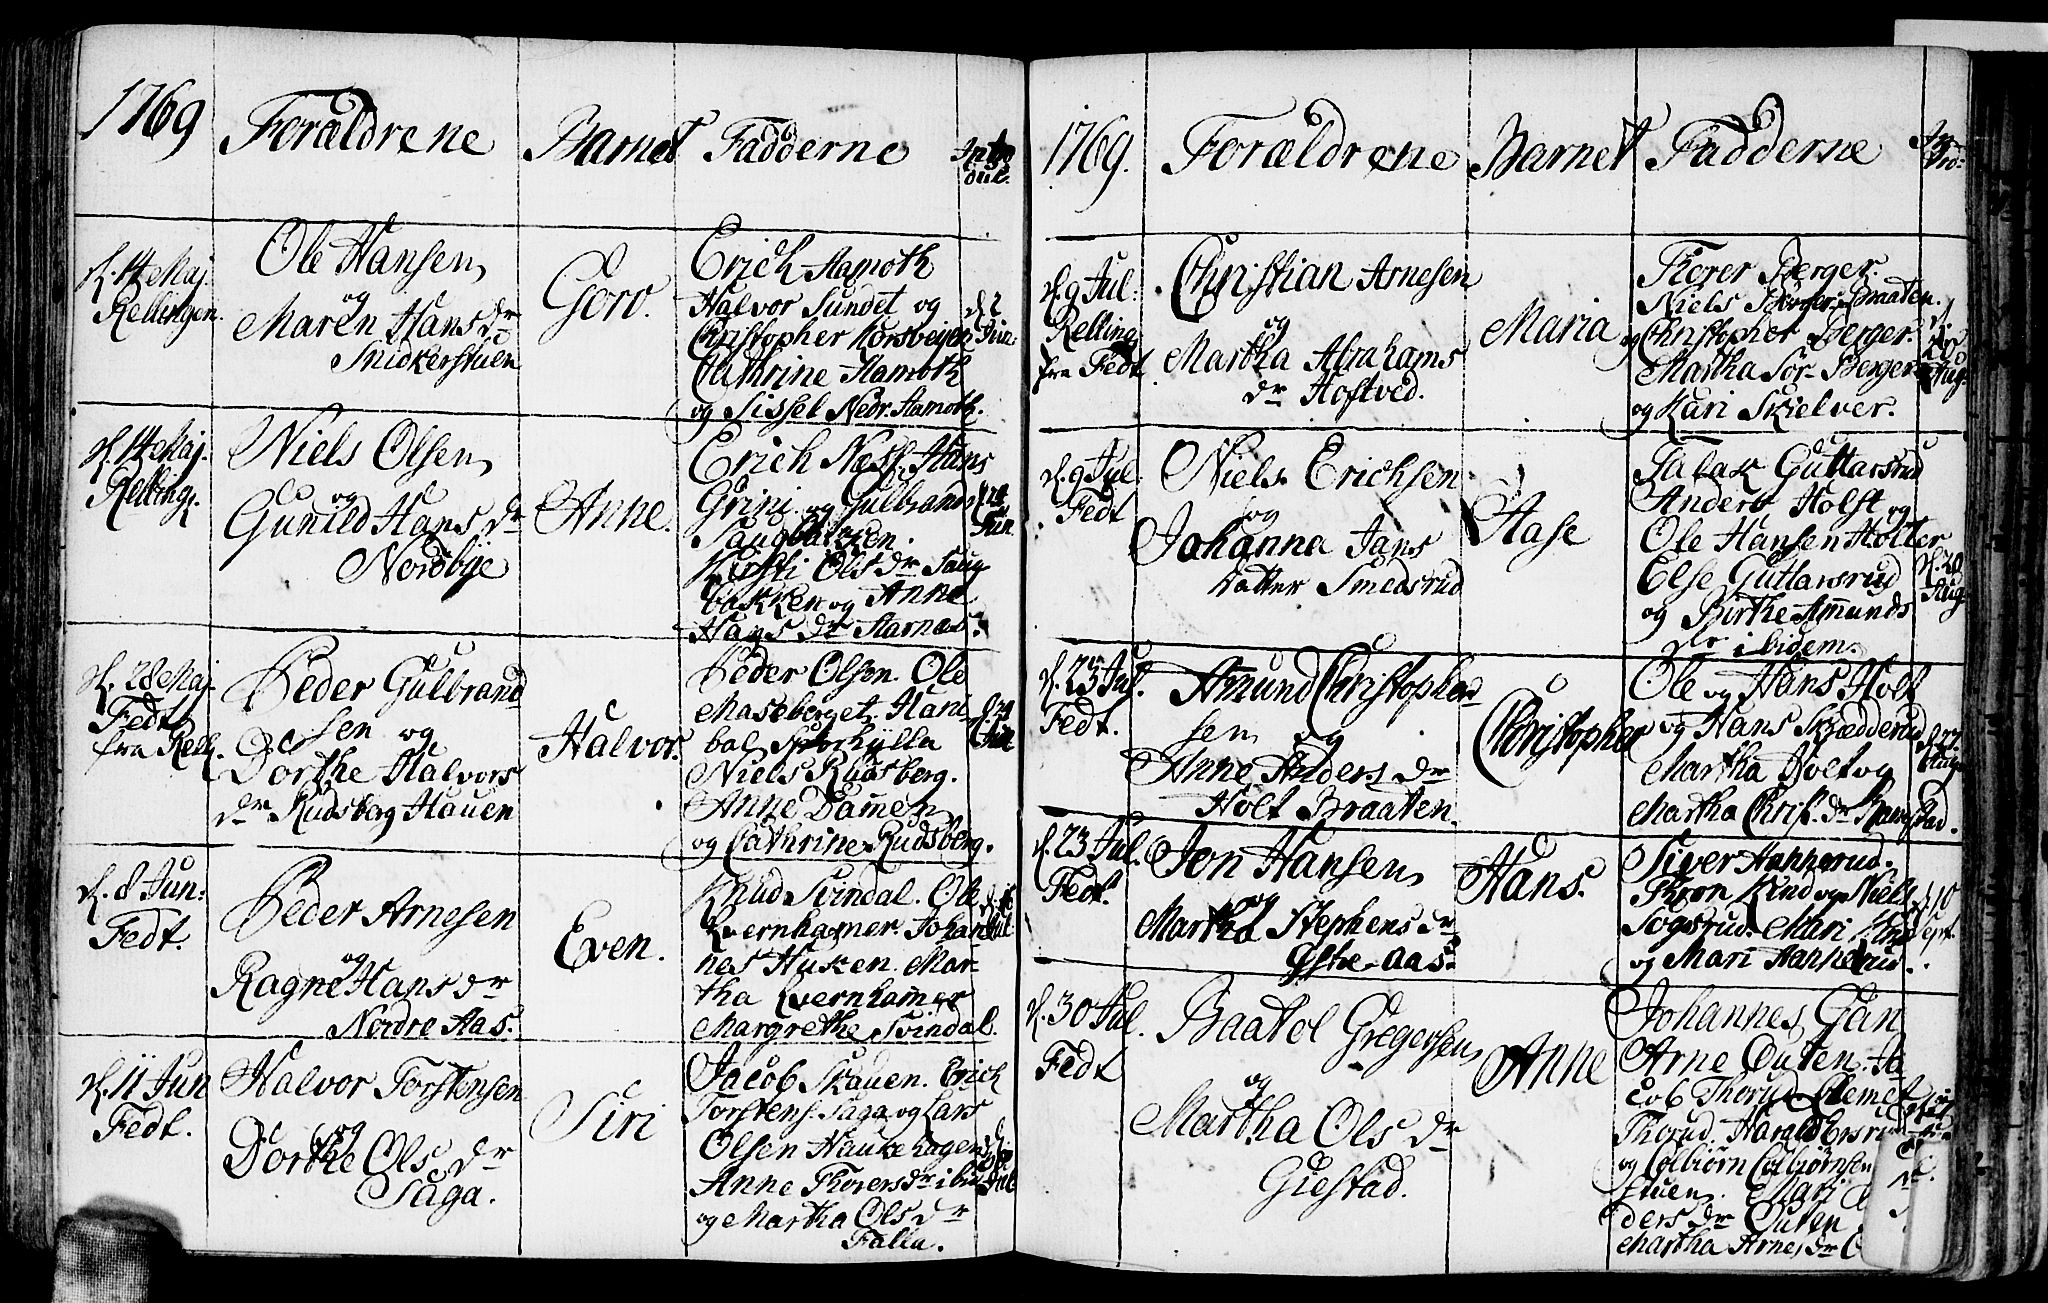 1769
Forældrene
Barnet
Fadderne
Intro
duc.
d. 14 Maj.
Rellingen.
Ole Hansen
og
Maren Hans dr
Snickerstuen
Goro.
Erich Hamoth
Halvor Sundet og
Christopher Korsveien
Cathrine Hamoth
og Sissel Nedr. Hamoth.
d. 2
Jun:
d. 14 Maj.
Relling.
Niels Olsen
og
Gunild Hans dr
Nordbye
Anne.
Erich Næss. Hans
Grini og Gulbrand
Saugbakken.
Kirsti Ols dr Saug
bakken og Anne
Hans dr Harnæs.
Jun.
d. 28 Maj.
Fedt
fra Rell.
Peder Gulbrand
sen og
Dorthe Halvors
dr Rudsberg Hauen
Halvor.
Peder Olsen. Ole
Maseberget. Hani
bal Sporkylla
Niels Rudsberg.
Anne Damen
og Cathrine Rudsberg.
Jun
d. 8 Jun:
Fedt.
Peder Arnesen
og
Ragne Hans dr
Nordre Aas.
Even.
Knud Svindal. Ole
Kvernhamer. Johan
nes Husen. Mar-
tha Kvernhamer
Margrethe Svindal.
Jul
d. 11 Jun
Fedt.
Halvor Torstensen
og
Dorthe Ols dr
Saga.
Siri
Jacob Skauen. Erich
Torstens. Saga og Lars
Olsen Haukehagen
Anne Thorers dr ibid
og Martha Ols dr
Falla.
Jul
1769.
Forældrene
Barnet
Fadderne
In-
tro:
d. 9 Jul:
Relling
fra Fedt
Christian Arnesen
og
Martha Abrahams
dr Hoftved.
Maria
Thorer Berger.
Niels Berger-Braaten.
og Christopher Berger.
Martha Sør-Berger
og Kari Skielver.
d.
20
Aug.
d. 9 Jul.
Fedt
Niels Erichsen
og
Johanna Jans
datter Smedsrud
Aase
Talak Guttarsrud
Anders Holst og
Ole Hansen Holter
Else Guttarsrud
og Birthe Amunds
dr ibidem.
d. 20
Aug
d. 23 Jul.
Fedt.
Amund Christopher
sen og
Anne Anders dr
Holt Braaten.
Christopher
Ole og Hans Holt
og Hans Skjædderud
Martha Holt og
Martha Christ. dr Ramstad.
d. 27
Aug
d. 23 Jul.
Fedt.
Jon Hansen
og
Martha Stephens dr
Østre-Aas.
Hans.
Siver Hannerud.
Thron Kind og Niels
Sogsrud. Mari Kind
og Mari Hannerud.
d. 10
Sept.
d. 30 Jul.
Fedt
Baatol Gregersen
og
Martha Ols dr
Giestad.
Anne
Johannes Gan
Arne Outen. Ja
cob Thorud. Clemet
Thorud. Harald
og Colbiørn Colbiørnsen
stuen. Mari
ders dr Outen
Martha Arnes dr